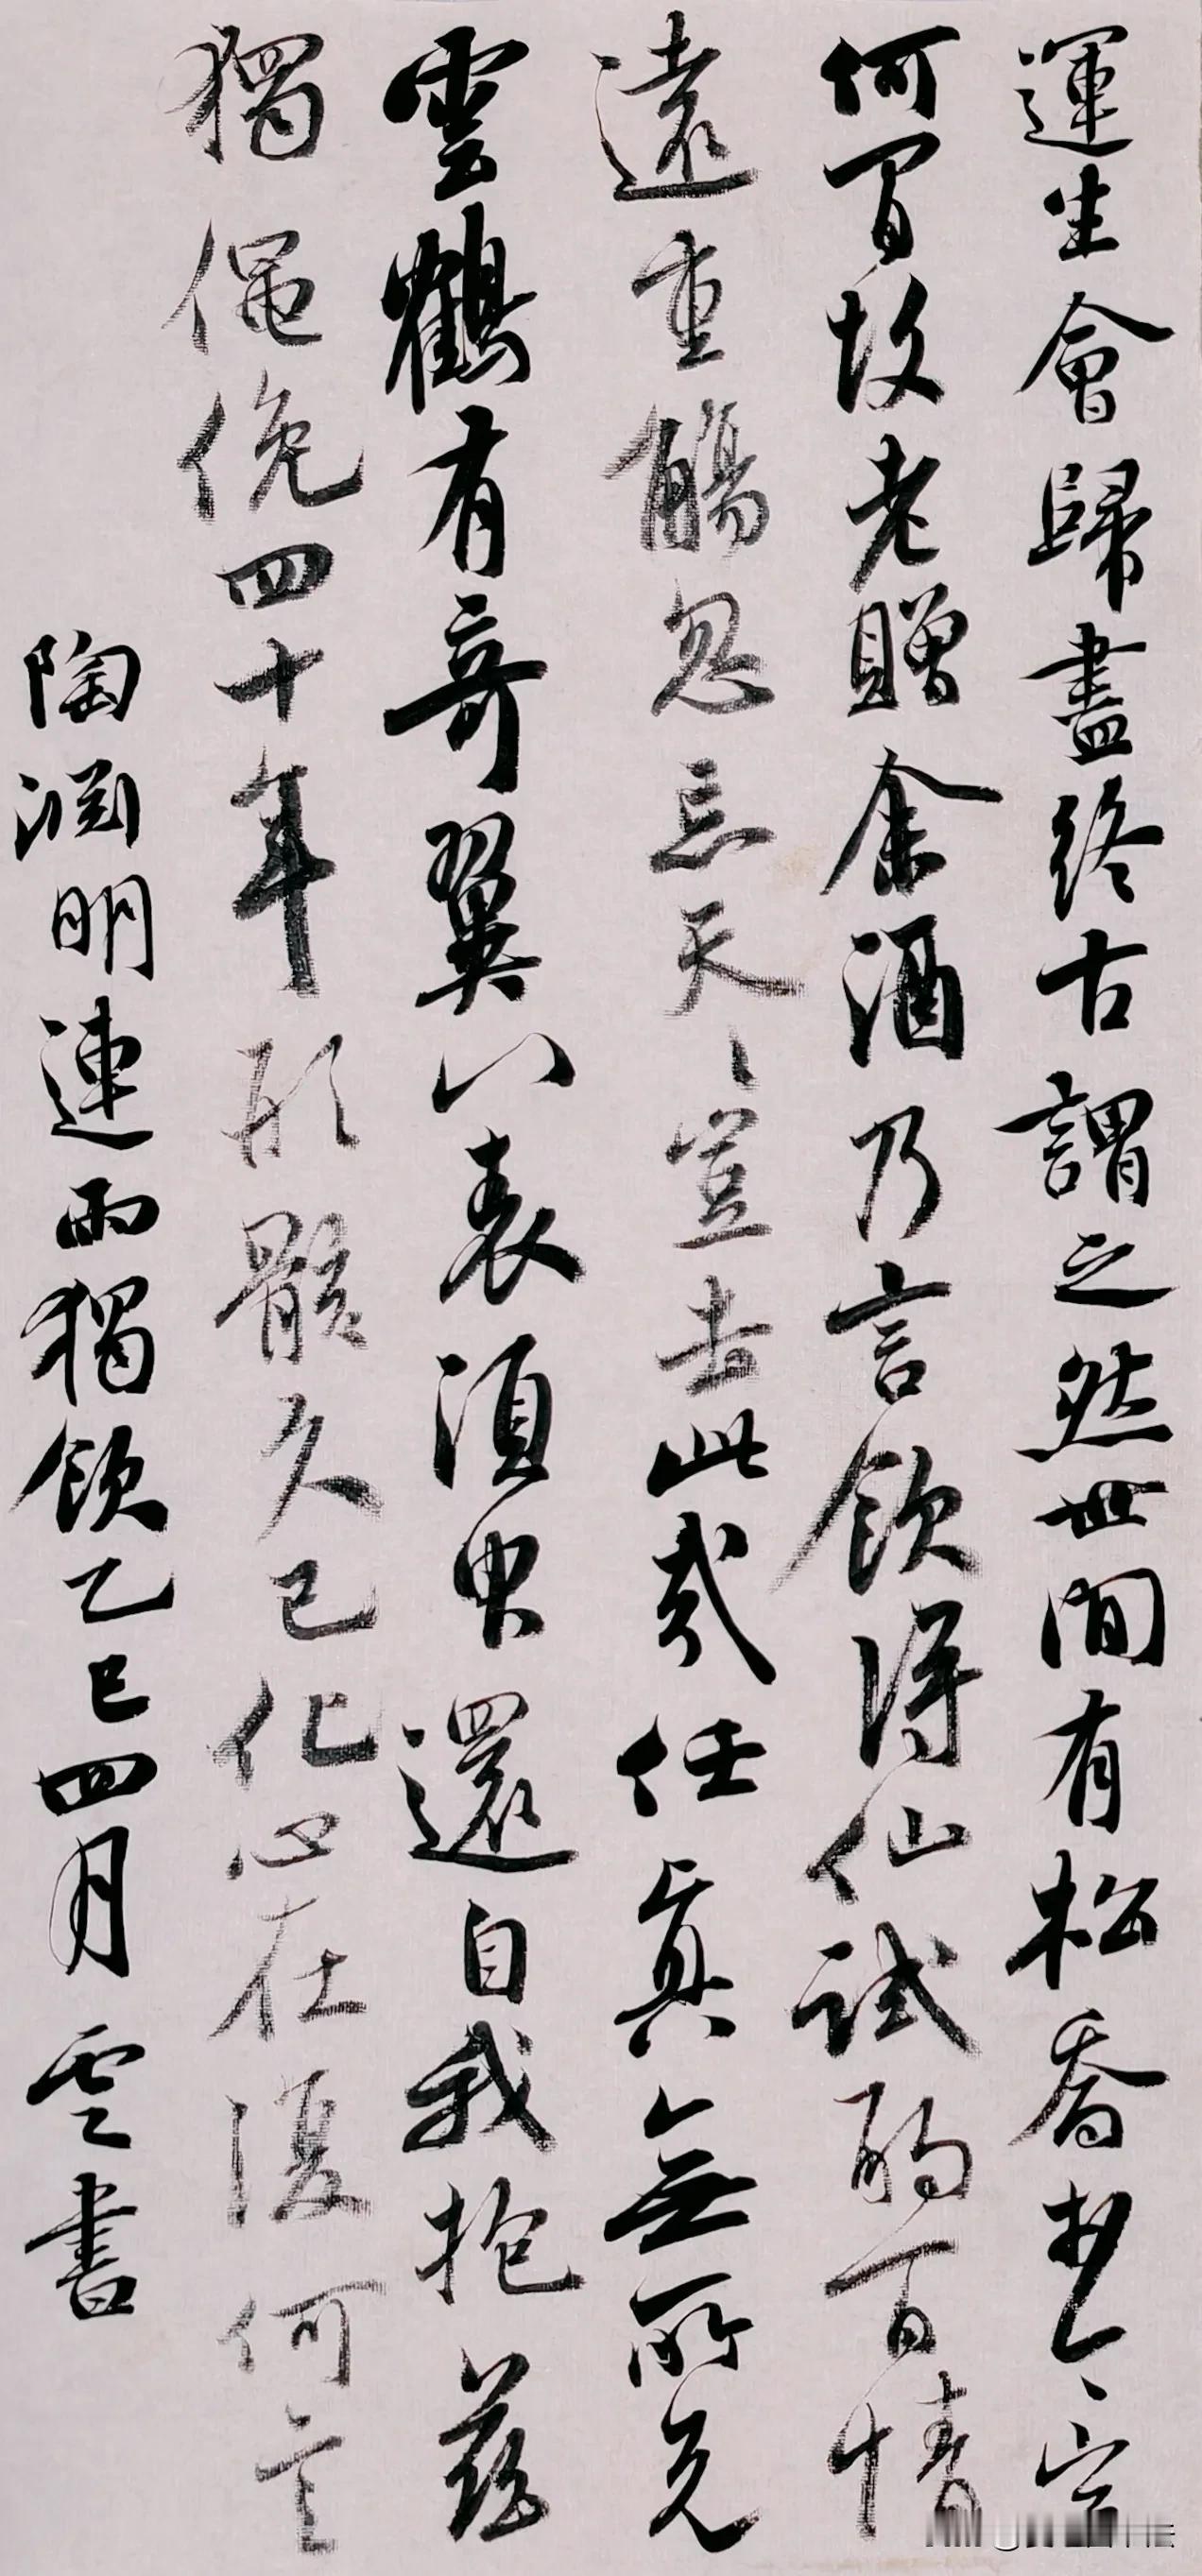 運生會歸盡終古謂之然世間有松喬於今定
何間故老贈余酒乃言飲得仙試酌百情
遠重觴忽忘天〻豈去此哉任真無所先
雲鶴有奇翼八表須臾還自我抱茲
獨僶俛四十年形骸久已化心在復何言
陶淵明連雨獨飲乙巳四月雲書